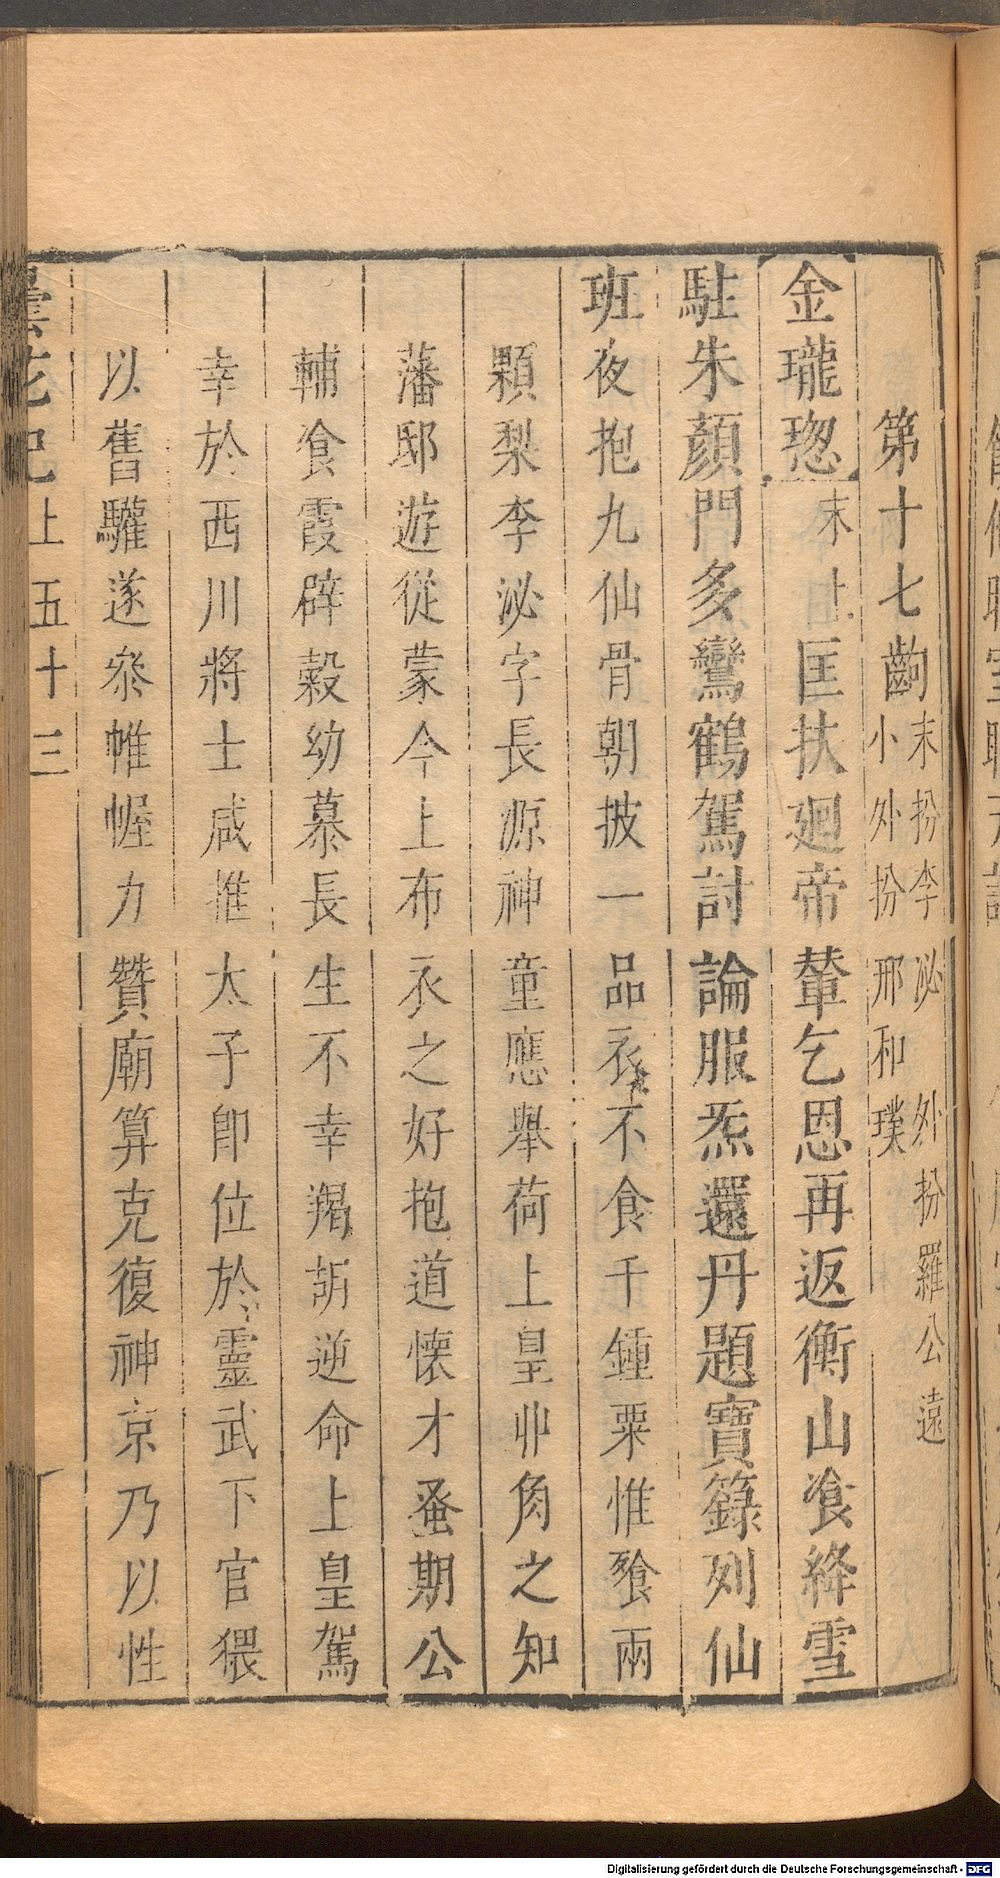 第十七齣 末扮李泌 外扮羅公遠 小外扮邢和璞
金瓏璁 末上 匡扶廻帝輦乞恩再返衡山飡絳雪
駐朱顏門多鸞鶴駕討論服炁還丹題寶籙列仙
班夜抱九仙骨朝披一品衣不食千鍾粟惟飱兩
顆梨李泌字長源神童應舉荷上皇丱角之知
藩邸遊從蒙今上布衣之好抱道懐才蚤期公
輔食霞辟穀幼慕長生不幸羯胡逆命上皇駕
幸於西川將士咸推太子卽位於靈武下官猥
以舊驩遂叅帷幄力贊廟算克復神京乃以性
曇花記 上 五十三
Digitalisierung gefördert durch die Deutsche Forschungsgemeinschaft - DFG